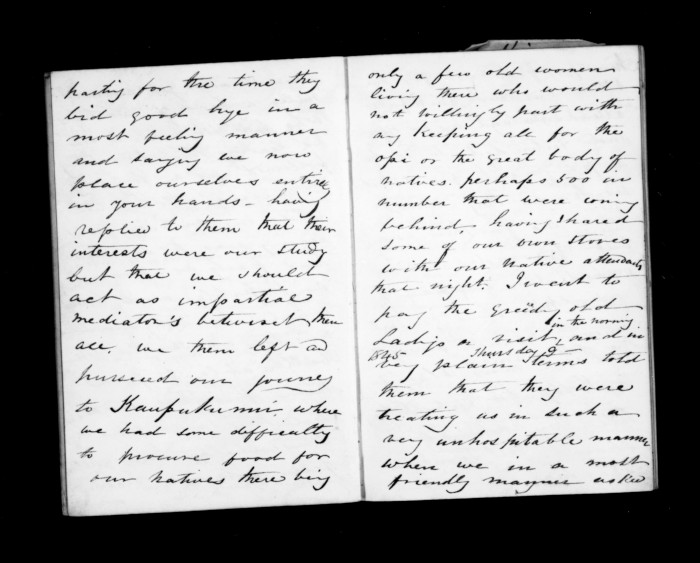 parting for the time they
bid good bye in a
most feeling manner
and saying we now
place ourselves entirely
in your hands - having
replied to them that their
interests were our study
but that we should
act as impartial
mediator's betwixt them
all. we then left and
pursued our journey
to Kaupukumu where
we had some difficulty
to procure food for
our natives there being
only a few old women
living there who would
not willingly part with
any keeping all for the
opi or the great body of
natives. perhaps 500 in
number that were coming
behind - having shared
some of our own stores
with our native attendants
that night. I went to
pay the old
Lady's a visit, in the morning and in
1845 Thursday 9
very plain terms told
them that they were
treating us in such a
very unhospitable manner
when we in a most
friendly manner asked